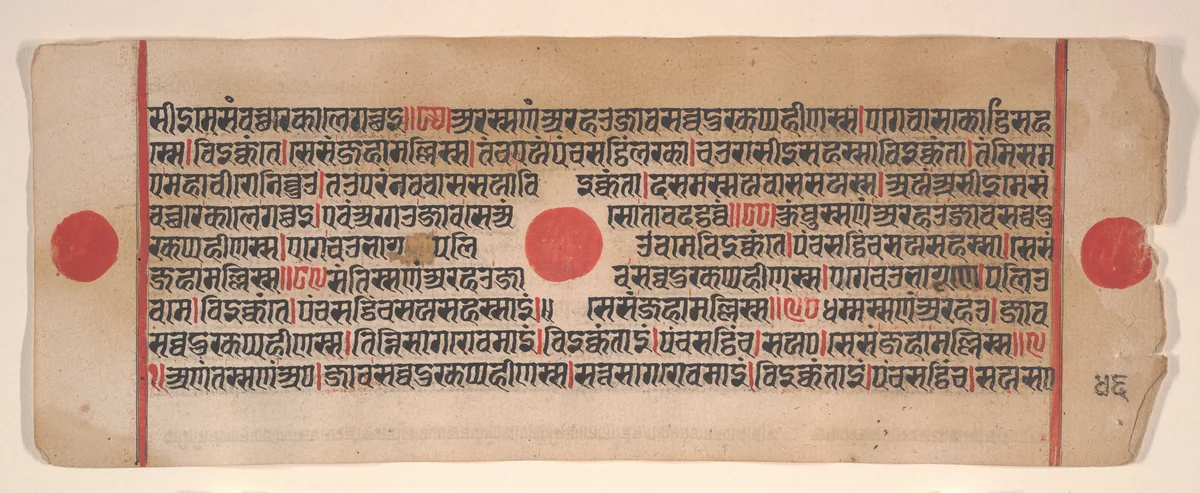 सीइमे संवच्छरे काले गच्छइ॥ अरस्स णं अरहओ जाव सव्वदुक्खप्पहीणस्स।एगे वासकोडिसह
स्से।विइक्कंते।सेसं जहा मल्लिस्स।तं च एयं पंचसट्ठिं लक्खा।चउरासीइसहस्सा विइक्कंता।तंमि सम
ए महावीरो निव्वुओ।तओ परं नव वाससया वि इक्कंता।दसमस्स य वाससयस्स।अयं असीइमे सं
वच्छरे काले गच्छइ।एवं अग्गओ जाव सेअंसो ताव दट्ठव्वं॥ कुंथुस्स णं अरहओ जाव सव्वदु
क्खप्पहीणस्स।एगे चउभाग पलि ओवमे विइक्कंते।पंचसट्ठिं च सयसहस्सा।सेसं
जहा मल्लिस्स॥ संतिस्स णं अरहओ जा व सव्वदुक्खप्पहीणस्स।एगे चउभागूणे।पलिओ
वमे।विइक्कंते।पंचसट्ठिं च सयसहस्साइं॥ सेसं जहा मल्लिस्स॥९०धम्मस्स णं अरहओ।जाव
सव्वदुक्खप्पहीणस्स।तिन्नि सागरोवमाइं।विइक्कंताइं।पंचसट्ठिं च।सयस।सेसं जहा मल्लिस्स॥९
१॥अणंतस्स णं अर।जाव सव्वदुक्खप्पहीणस्स।सत्त सागरोवमाइं।विइक्कंताइं।पंचसट्ठिं च।सयसा